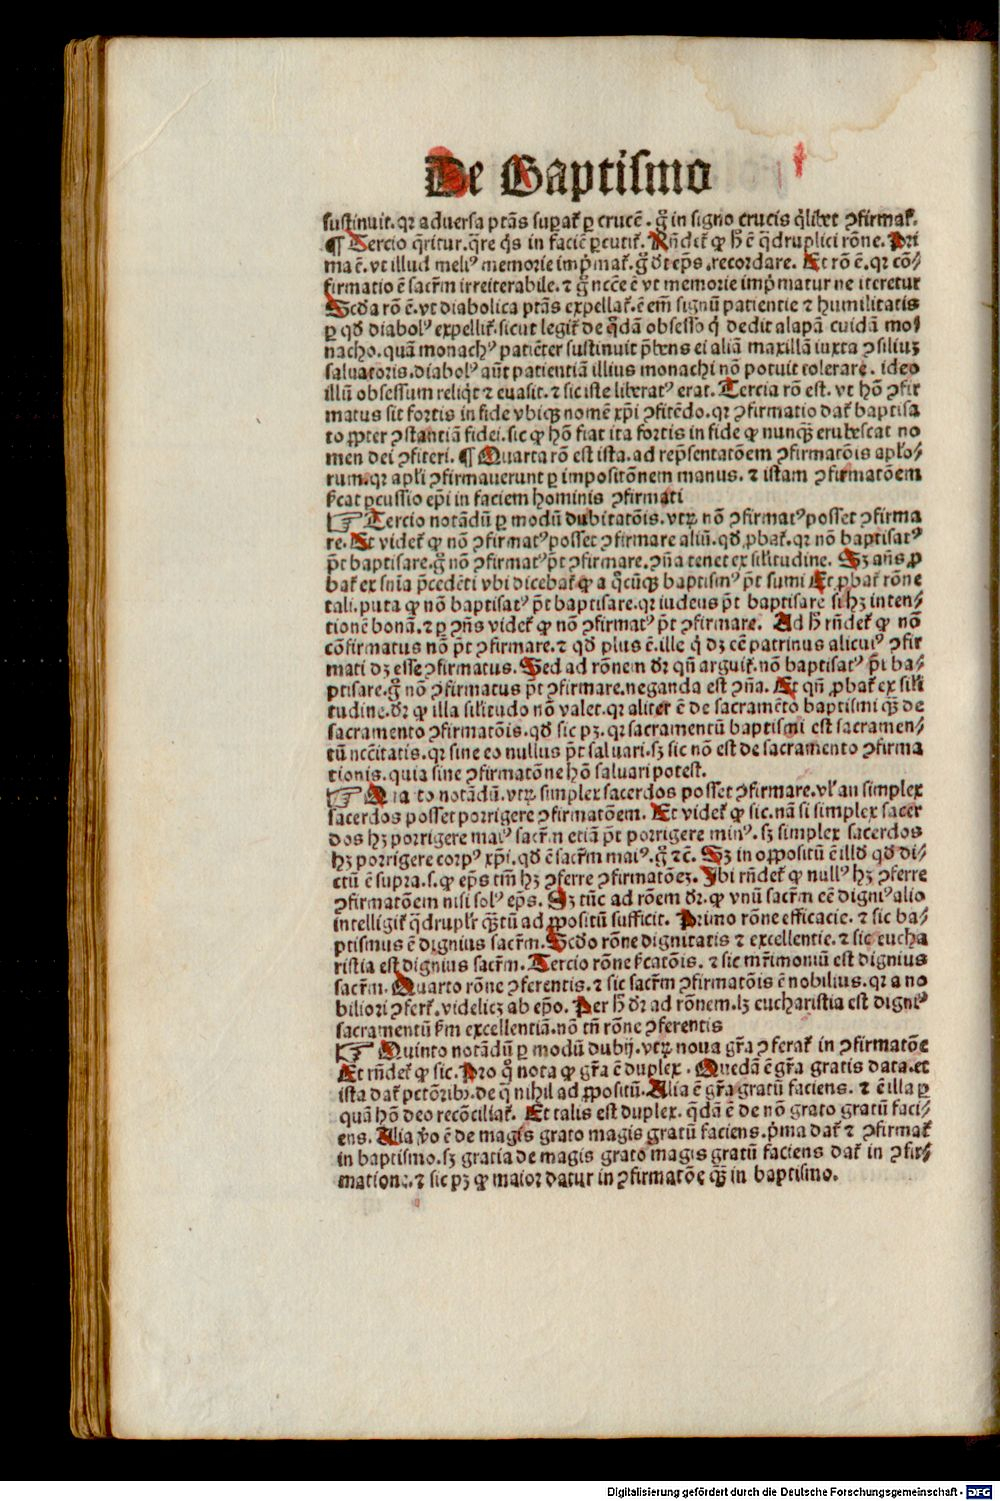 De Baptismo
sustinuit. qꝛ adversa ptãs supaƭ ꝑ crucẽ. gͦ in signo crucis qͥlibet ꝯfirmaƭ.
¶ Tercio q̃ritur. q̃re qͥs in faciẽ ꝑcutiƭ. Rñdeƭ ꝙ h̃ ẽ q̃druplici rõne. Pri
ma ẽ. vt illud meliꝰ memorie imp̃maƭ. gͦ dt ep̃s. recordare. Et rõ ẽ. qꝛ cõ⸗
firmatio ẽ sacr̃m irreiterabile. ⁊ gͦ ncc̃e ẽ vt memorie imp̃matur ne iteretur
Scd̃a rõ ẽ. vt diabolica ptãs expellaƭ. ẽ em̃ signũ patientie ⁊ humilitatis
ꝑ qd̃ diabolꝰ expelliƭ. sicut legiƭ de q̃dã obsesso qͥ dedit alapã cuidã mo⸗
nacho. quã monachꝰ patiẽter sustinuit p̃bens ei aliã maxillã iuxta ꝯsiliuꝫ
salvatoris. diabolꝰ aũt patientiã illius monachi nõ potuit tolerare. ideo
illũ obsessum reliqͥt ⁊ euasit. ⁊ sic iste liberatꝰ erat. Tercia rõ est. vt hõ ꝯfir
matus sit fortis in fide vbiqꝫ nomẽ xp̃i ꝯfitẽdo. qꝛ ꝯfirmatio daƭ baptisa
to ꝓpter ꝯstantiã fidei. sic ꝙ hõ fiat ita fortis in fide ꝙ nunqꝫ̃ erubescat no
men dei ꝯfiteri. ¶ Quarta rõ est ista. ad rep̃sentatõem ꝯfirmatõis apl̃o⸗
rum. qꝛ apl̃i ꝯfirmauerunt ꝑ impositõnem manus. ⁊ istam ꝯfirmatõem
ſ̃cat ꝑcussio ep̃i in faciem hominis ꝯfirmati
☞ Tercio notãdũ ꝑ modũ dubitatõis. vtꝝ nõ ꝯfirmatꝰ posset ꝯfirma
re. Et videƭ ꝙ nõ ꝯfirmatꝰ posset ꝯfirmare aliũ. qd̃ ꝓbaƭ. qꝛ nõ baptisatꝰ
p̃t baptisare. gͦ nõ ꝯfirmatꝰ p̃t ꝯfirmare. ꝯña tenet ex sil̃itudine. Sꝫ añs ꝓ
baƭ ex snĩa p̃cedẽti vbi dicebaƭ ꝙ a qͦcũqꝫ baptism̃ꝰ p̃t sumi Et ꝓbaƭ rõne
tali. puta ꝙ nõ baptisatꝰ p̃t baptisare. qꝛ iudeus p̃t baptisare si hꝫ inten⸗
tionẽ bonã. ⁊ ꝑ ꝯñs videƭ ꝙ nõ ꝯfirmatꝰ p̃t ꝯfirmare. Ad h̃ rñdeƭ ꝙ nõ
cõfirmatus nõ p̃t ꝯfirmare. ⁊ qd̃ plus ẽ. ille qͥ dꝫ cẽ patrinus alicuiꝰ ꝯfir
mati dꝫ esse ꝯfirmatus. Sed ad rõnem dꝛ qñ arguiƭ. nõ baptisatꝰ p̃t ba⸗
ptisare. gͦ nõ ꝯfirmatus p̃t ꝯfirmare. neganda est ꝯña. Et qñ ꝓbaƭ ex sil̃i
tudine. dꝛ ꝙ illa sil̃itudo nõ valet. qꝛ aliter ẽ de sacramẽto baptismi qꝫ̃ de
sacramento ꝯfirmatõis. qd̃ sic pꝫ. qꝛ sacramentũ baptismi est sacramen⸗
tũ nc̃citatis. qꝛ sine eo nullus p̃t saluari. sꝫ sic nõ est de sacramento ꝯfirma
tionis. quia sine ꝯfirmatõne hõ saluari potest.
☞ Quarto notãdũ. vtꝝ simplex sacerdos posset ꝯfirmare. vl̃ an simplex
sacerdos posset porrigere ꝯfirmatõem. Et videƭ ꝙ sic. nã si simplex sacer
dos hꝫ porrigere maiꝰ sacr̃m etiã p̃t porrigere minꝰ. sꝫ simplex sacerdos
hꝫ porrigere corpꝰ xp̃i. qd̃ ẽ sacr̃m maiꝰ. gͦ ⁊c̃. Sꝫ in oppositũ ẽ illd̃ qd̃ di⸗
ctũ ẽ supra. s. ꝙ ep̃s tm̃ hꝫ ꝯferre ꝯfirmatõeꝫ. Ibi rñdeƭ ꝙ nullꝰ hꝫ ꝯferre
ꝯfirmatõem nisi solꝰ ep̃s. Sꝫ tũc ad rõem dꝛ. ꝙ vnũ sacr̃m cẽ digniꝰ alio
intelligiƭ q̃drupl̃r qꝫ̃tũ ad ꝓpositũ sufficit. Primo rõne efficacie. ⁊ sic ba⸗
ptismus ẽ dignius sacr̃m. Scd̃o rõne dignitatis ⁊ excellentie. ⁊ sic eucha
ristia est dignius sacr̃m. Tercio rõne ſ̃catõis. ⁊ sic mr̃imoniũ est dignius
sacr̃m. Quarto rõne ꝯferentis. ⁊ sic sacr̃m ꝯfirmatõis ẽ nobilius. qꝛ a no
biliori ꝯferƭ. videlicꝫ ab ep̃o. Per h̃ dꝛ ad rõnem. lꝫ eucharistia est digniꝰ
sacramentũ ſ̃m excellentiã. nõ tñ rõne ꝯferentis
☞ Quinto notãdũ ꝑ modũ dubij. vtꝝ noua gr̃a ꝯferaƭ in ꝯfirmatõe
Et rñdeƭ ꝙ sic. Pro qͦ nota ꝙ gr̃a ẽ duplex. Quedã ẽ gr̃a gratis data. et
ista daƭ pctõribꝫ. de q̃ nihil ad ꝓpositũ. Alia ẽ gr̃a gratũ faciens. ⁊ ẽ illa ꝑ
quã hõ deo recõciliaƭ. Et talis est duplex. q̃dã ẽ de nõ grato gratũ faci⸗
ens. Alia ṽo ẽ de magis grato magis gratũ faciens. p̃ma daƭ ⁊ ꝯfirmaƭ
in baptismo. sꝫ gratia de magis grato magis gratũ faciens daƭ in ꝯfir⸗
matione. ⁊ sic pꝫ ꝙ maior datur in ꝯfirmatõe qꝫ̃ in baptismo.
Digitalisierung gefördert durch die Deutsche Forschungsgemeinschaft - DFG